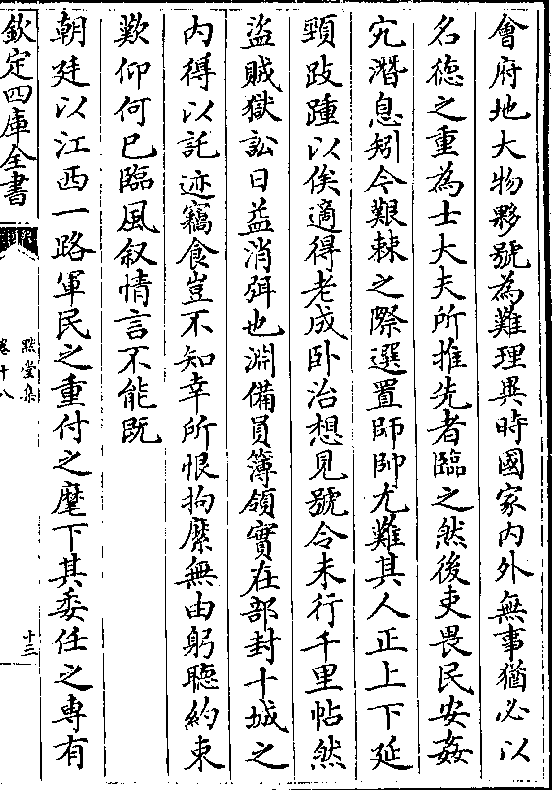 會府地大物夥號為難理異時國家内外無事猶必以
名德之重為士大夫所推先者臨之然後吏畏民安姦
宄潛息矧今艱棘之際選置師帥尤難其人正上下延
頸跂踵以俟適得老成卧治想見號令未行千里帖然
盜賊獄訟日益消弭也淵備員簿領實在部封十城之
内得以託迹竊食豈不知幸所恨拘縻無由躬聽約束
歎仰何已臨風叙情言不能既
朝廷以江西一路軍民之重付之麾下其委任之專有
欽定四庫全書
默堂集
卷十八
十三